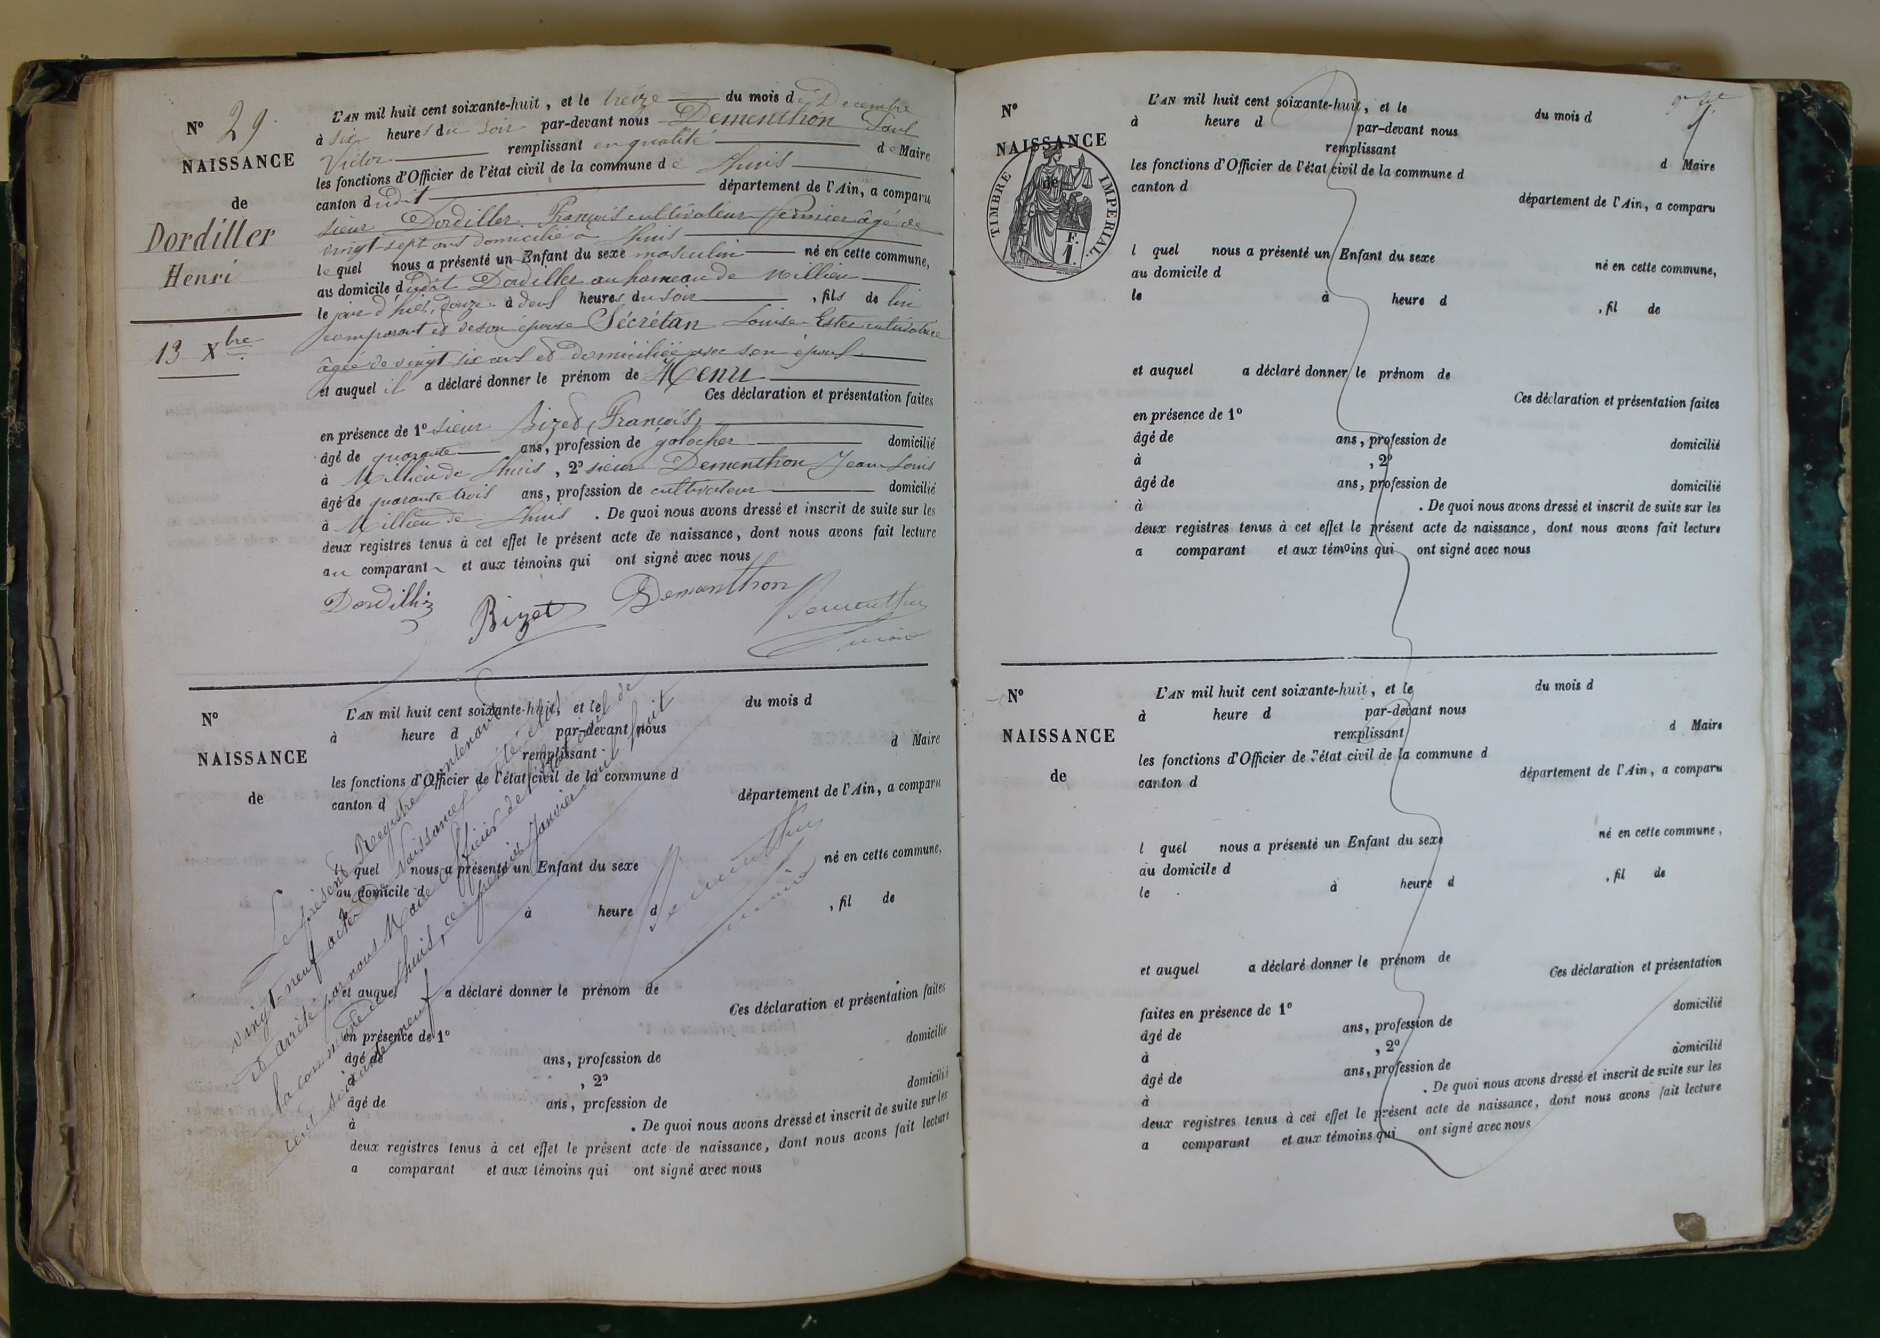 N° 29
NAISSANCE
de
Dordiller
Henri
13 Xbre
L'AN mil huit cent soixante-huit, et le treize du mois de Décembre
à six heures du soir par-devant nous Dementhon Paul
Victor remplissant en qualité de Maire
les fonctions d'Officier de l'état civil de la commune de Lhuis
canton dudit département de l'Ain, a comparu
sieur Dordiller François cultivateur fermier âgé de
vingt sept ans domicilié à Lhuis
lequel nous a présenté un Enfant du sexe masculin né en cette commune,
au domicile dudit Dordiller au hameau de Millieu
le jour d'hier, douze à deux heures du soir, fils de lui
comparant et de son épouse Sécrétan Louise Ester cultivatrice
âgée de vingt six ans et domiciliée avec son époux
et auquel il a déclaré donner le prénom de Henri
Ces déclaration et présentation faites
en présence de 1° sieur Bizet, François,
âgé de quarante ans, profession de galocher domicilié
à Millieu de Lhuis, 2° sieur Dementhon Jean Louis
âgé de quarante trois ans, profession de cultivateur domicilié
à Millieu de Lhuis. De quoi nous avons dressé et inscrit de suite sur les
deux registres tenus à cet effet le présent acte de naissance, dont nous avons fait lecture
au comparant et aux témoins qui ont signé avec nous
Bizet Dementhon Dementhon
maire
N°
NAISSANCE
de
L'AN mil huit cent soixante-huit, et le du mois d
à heure d par-devant nous
remplissant d Maire
les fonctions d'Officier de l'état civil de la commune d
canton d département de l'Ain, a comparu
l quel nous a présenté un Enfant du sexe né en cette commune,
au domicile d
à heure d , fil de
et auquel a déclaré donner le prénom de
Ces déclaration et présentation faites
en présence de 1°
âgé de ans, profession de domicilié
à , 2°
âgé de ans, profession de domicilié
à . De quoi nous avons dressé et inscrit de suite sur les
deux registres tenus à cet effet le présent acte de naissance, dont nous avons fait lecture
a comparant et aux témoins qui ont signé avec nous
Le présent Registre contenant
vingt-neuf actes de Naissances a été clos
et arrêté par nous Maire officier de l'état civil de
la commune de Lhuis, ce premier Janvier mil huit
cent soixante neuf
Dementhon
maire
N°
NAISSANCE
de
TIMBRE IMPERIAL.
F.
1.
L'AN mil huit cent soixante-huit, et le du mois d
à heure d par-devant nous
remplissant d Maire
les fonctions d'Officier de l'état civil de la commune d
canton d département de l'Ain, a comparu
l quel nous a présenté un Enfant du sexe né en cette commune,
au domicile d
le à heure d , fil de
et auquel a déclaré donner le prénom de
Ces déclaration et présentation faites
en présence de 1°
âgé de ans, profession de domicilié
à , 2°
âgé de ans, profession de domicilié
à . De quoi nous avons dressé et inscrit de suite sur les
deux registres tenus à cet effet le présent acte de naissance, dont nous avons fait lecture
a comparant et aux témoins qui ont signé avec nous
N°
NAISSANCE
de
L'AN mil huit cent soixante-huit, et le du mois d
à heure d par-devant nous
remplissant d Maire
les fonctions d'Officier de l'état civil de la commune d
canton d département de l'Ain, a comparu
l quel nous a présenté un Enfant du sexe né en cette commune,
au domicile d
le à heure d , fil de
et auquel a déclaré donner le prénom de
Ces déclaration et présentation
faites en présence de 1° domicilié
âgé de ans, profession de
à , 2° domicilié
âgé de ans, profession de
à . De quoi nous avons dressé et inscrit de suite sur les
deux registres tenus à cet effet le présent acte de naissance, dont nous avons fait lecture
a comparant et aux témoins qui ont signé avec nous